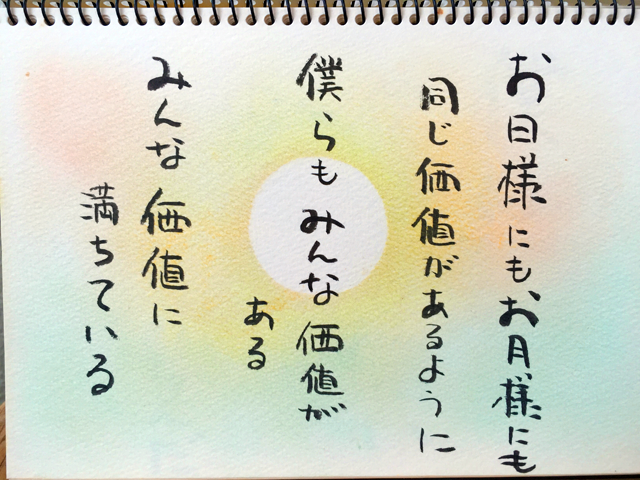 お日様にもお月様にも
同じ価値があるように
僕らもみんな価値が
ある
みんな価値に
満ちている